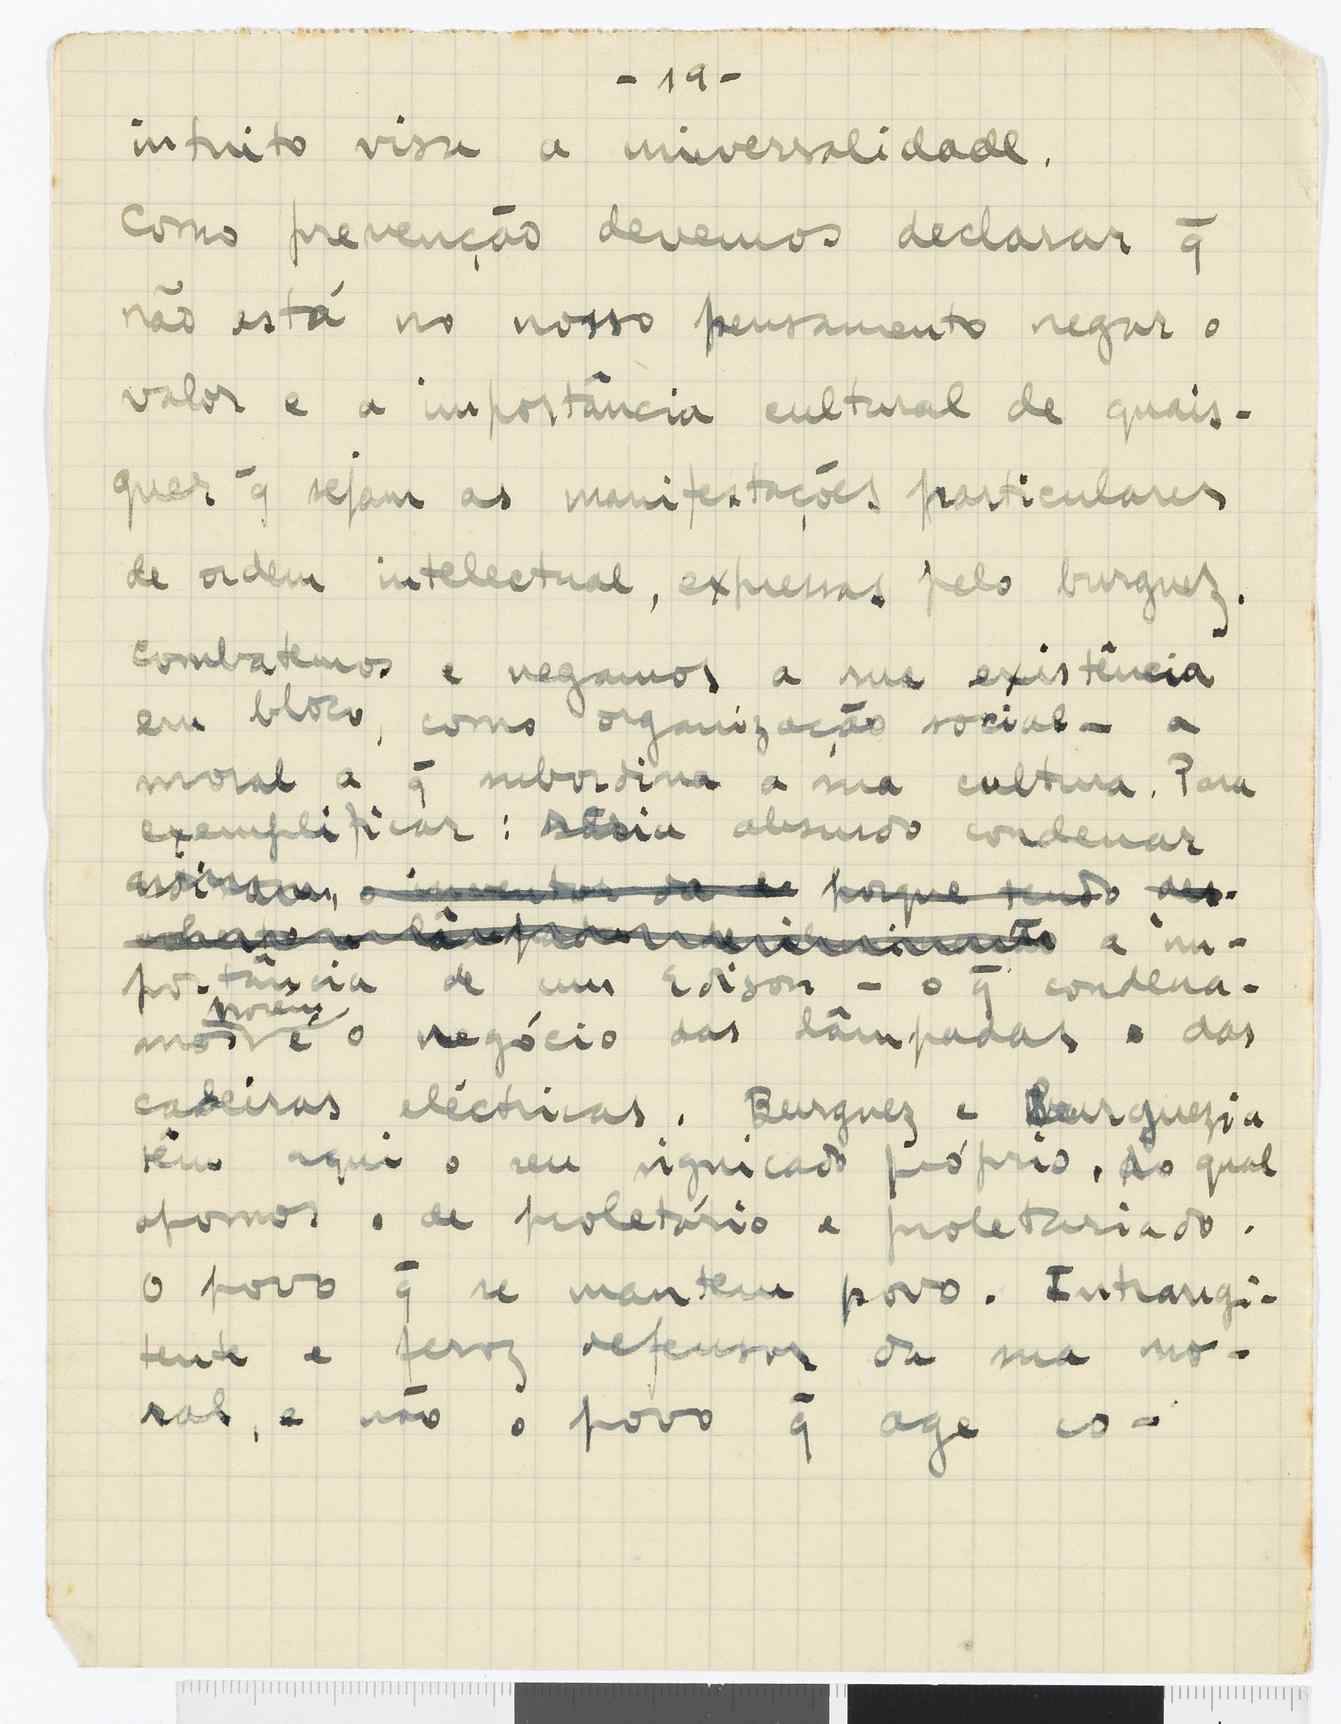 - 19 -
intuito visa a universalidade.
Como prevenção devemos declarar q̄
não está no nosso pensamento negar o
valor e a importância cultural de quais-
quer q̄ sejam as manifestações particulares
de ordem intelectual, expressas pelo burguez.
Combatemos e negamos a sua existência
em bloco, como organização social - a
moral a q̄ subordina a sua cultura. Para
exemplificar: sería absurdo condenar
o inventor da porque tendo des-
a im-
portância de um Edison - o q̄ condena-
porém
mos é o negócio das lâmpadas e das
cadeiras eléctricas. Burguez e Burguezia
têm aqui o seu signicado próprio. Ao qual
opomos o de proletário e proletariado.
O povo q̄ se mantem povo. Intransgi-
tente e feroz defensor da sua mo-
ral, e não o povo q̄ age co-